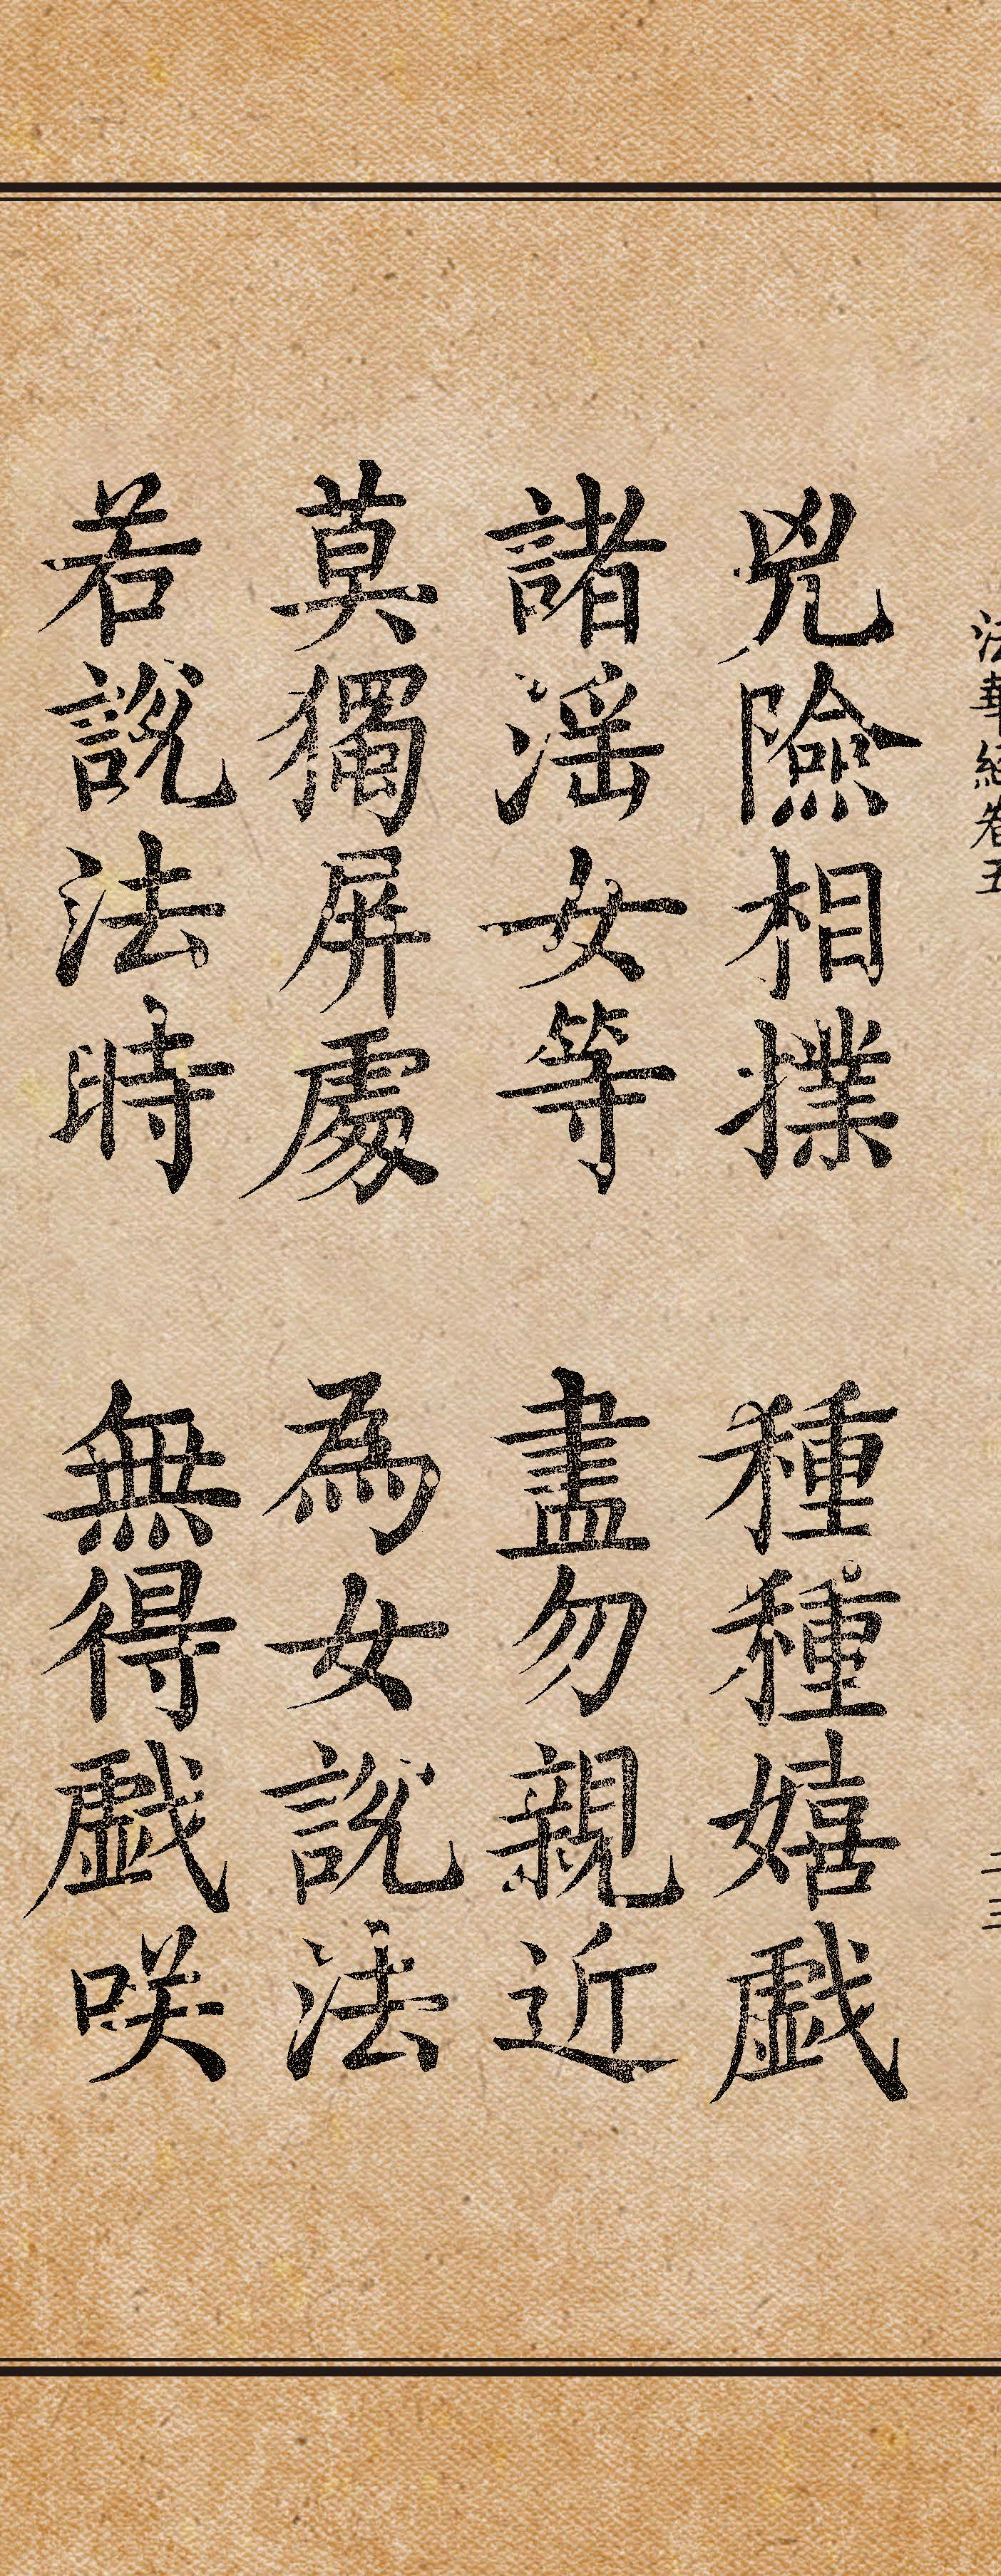 法華經卷五 二三
兇險相撲 種種嬉戲
諸婬女等 盡勿親近
莫獨屏處 為女說法
若說法時 無得戲咲